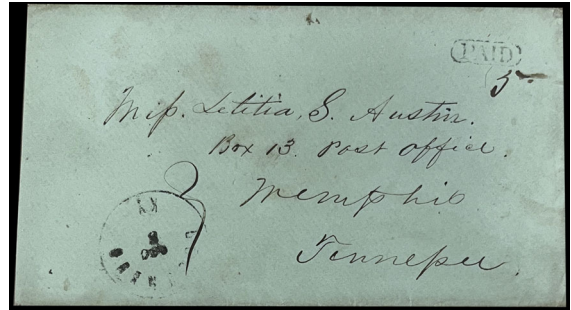 PAID
5
Miss. Letitia, S. Austin.
Box 13. Post Office.
Memphis
Tennessee.
KY